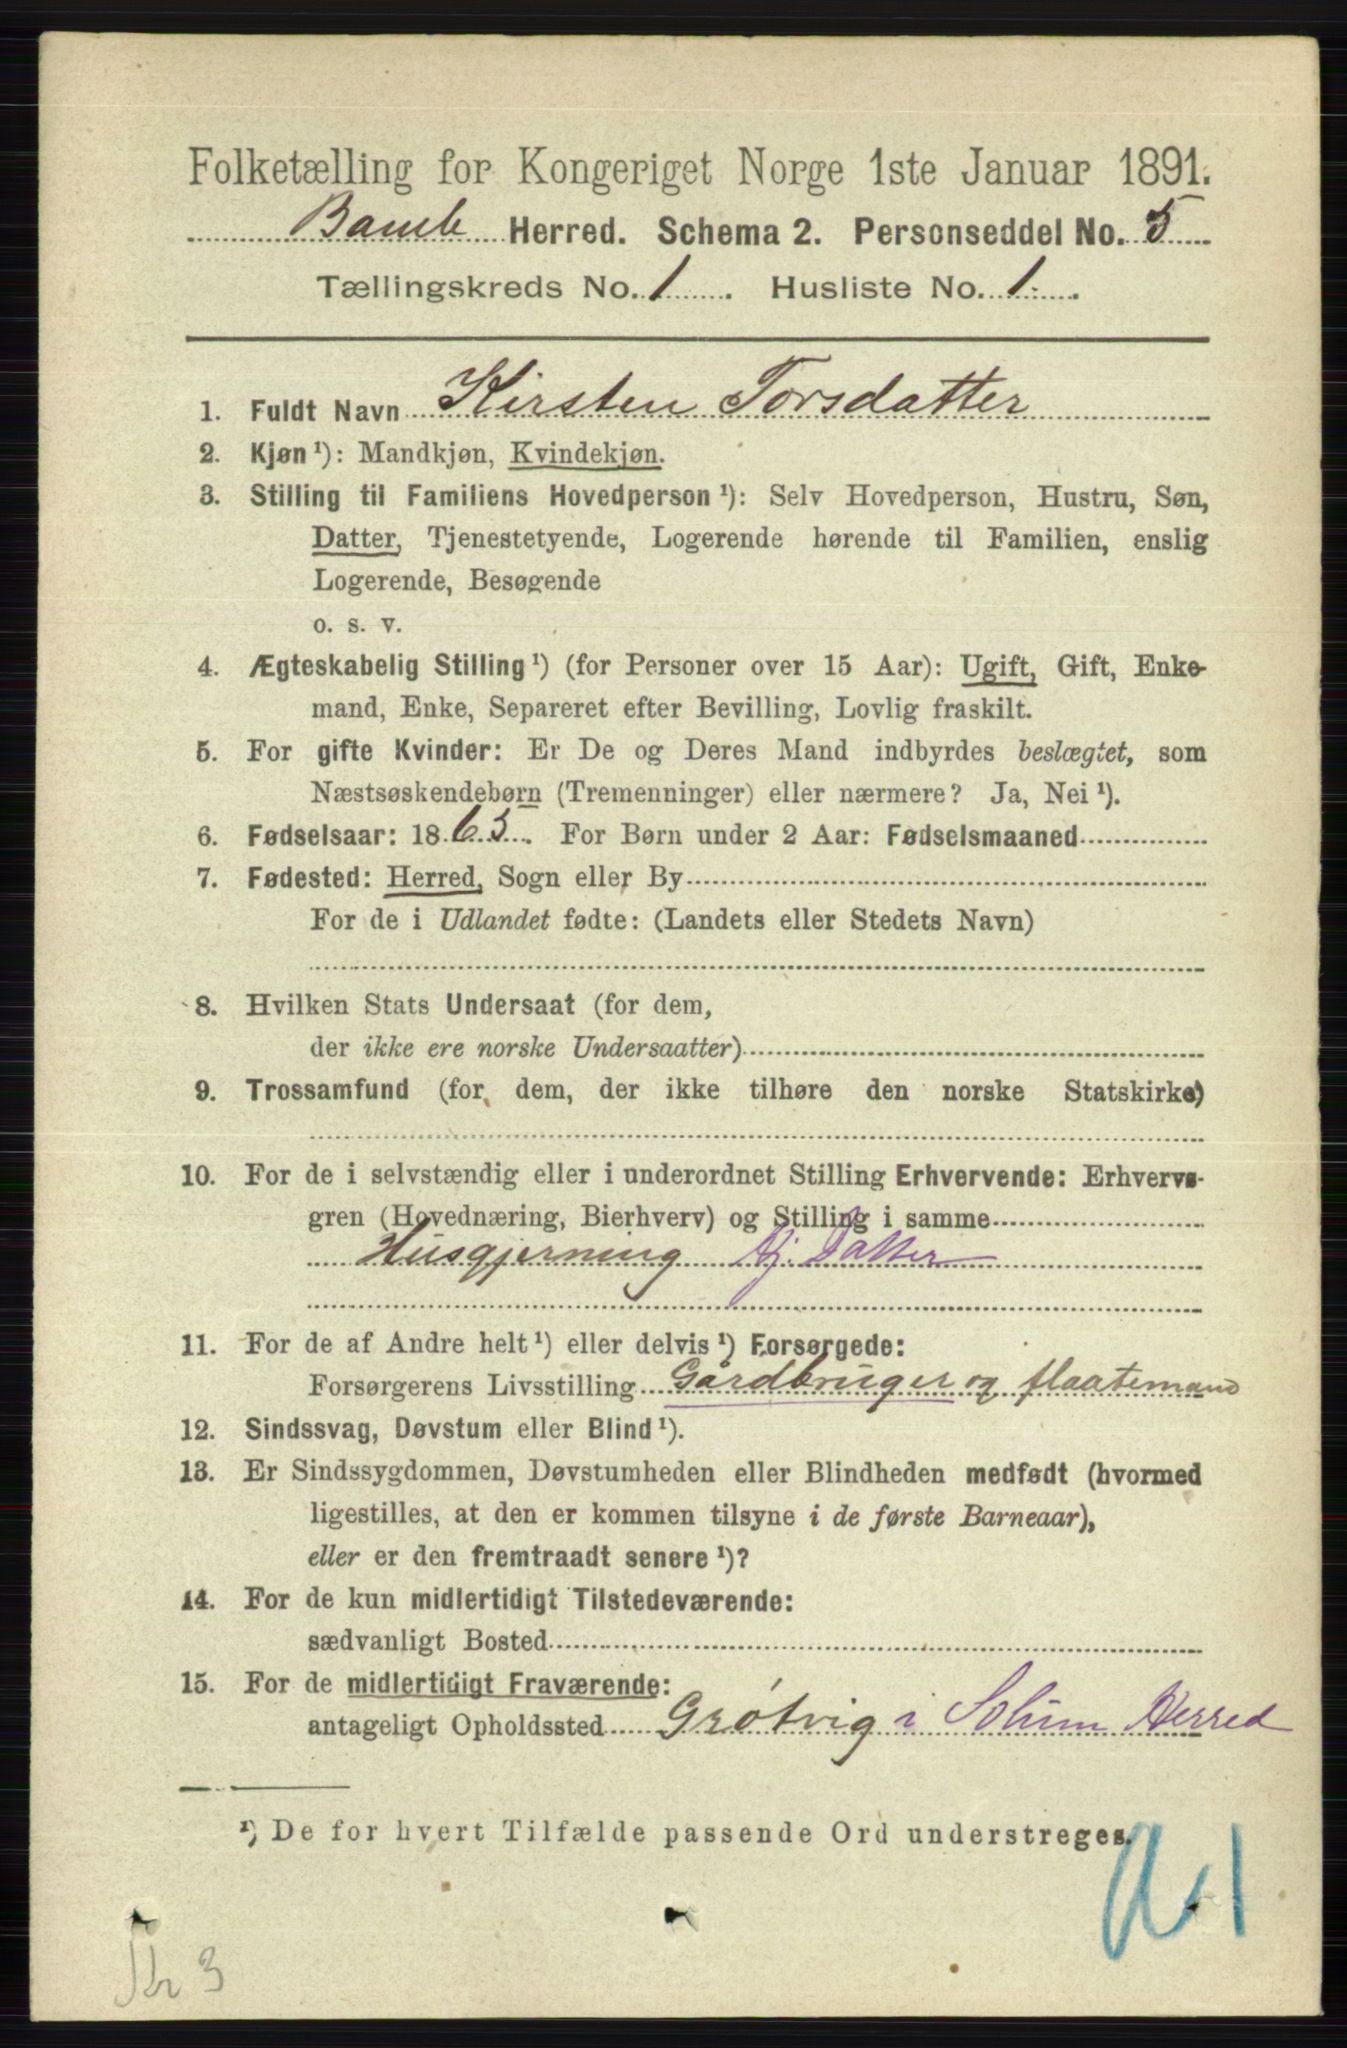 Folketælling for Kongeriget Norge 1ste Januar 1891.
Bamle Herred. Schema 2. Personseddel No. 5
Tællingskreds No. 1. Husliste No. 1.
1. Fuldt Navn Kirsten Torsdatter
2. Kjøn ¹): Mandkjøn, Kvindekjøn.
3. Stilling til Familiens Hovedperson ¹): Selv Hovedperson, Hustru, Søn,
Datter, Tjenestetyende, Logerende hørende til Familien, enslig
Logerende, Besøgende
o. s. v.
4. Ægteskabelig Stilling ¹) (for Personer over 15 Aar): Ugift, Gift, Enke-
mand, Enke, Separeret efter Bevilling, Lovlig fraskilt.
5. For gifte Kvinder: Er De og Deres Mand indbyrdes beslægtet, som
Næstsøskendebørn (Tremenninger) eller nærmere? Ja, Nei ¹).
6. Fødselsaar: 1865. For Børn under 2 Aar: Fødselsmaaned
7. Fødested: Herred, Sogn eller By
For de i Udlandet fødte: (Landets eller Stedets Navn)
8. Hvilken Stats Undersaat (for dem,
der ikke ere norske Undersaatter)
9. Trossamfund (for dem, der ikke tilhøre den norske Statskirke)
10. For de i selvstændig eller i underordnet Stilling Erhvervende: Erhvervs-
gren (Hovednæring, Bierhverv) og Stilling i samme
Husgjerning Hj. Datter
11. For de af Andre helt ¹) eller delvis ¹) Forsørgede:
Forsørgerens Livsstilling Gårdbruger og flaatemand
12. Sindssvag, Døvstum eller Blind ¹).
13. Er Sindssygdommen, Døvstumheden eller Blindheden medfødt (hvormed
ligestilles, at den er kommen tilsyne i de første Barneaar),
eller er den fremtraadt senere ¹)?
14. For de kun midlertidigt Tilstedeværende:
sædvanligt Bosted
15. For de midlertidigt Fraværende:
antageligt Opholdssted Grøtvig i Solum Herred
¹) De for hvert Tilfælde passende Ord understreges.
3